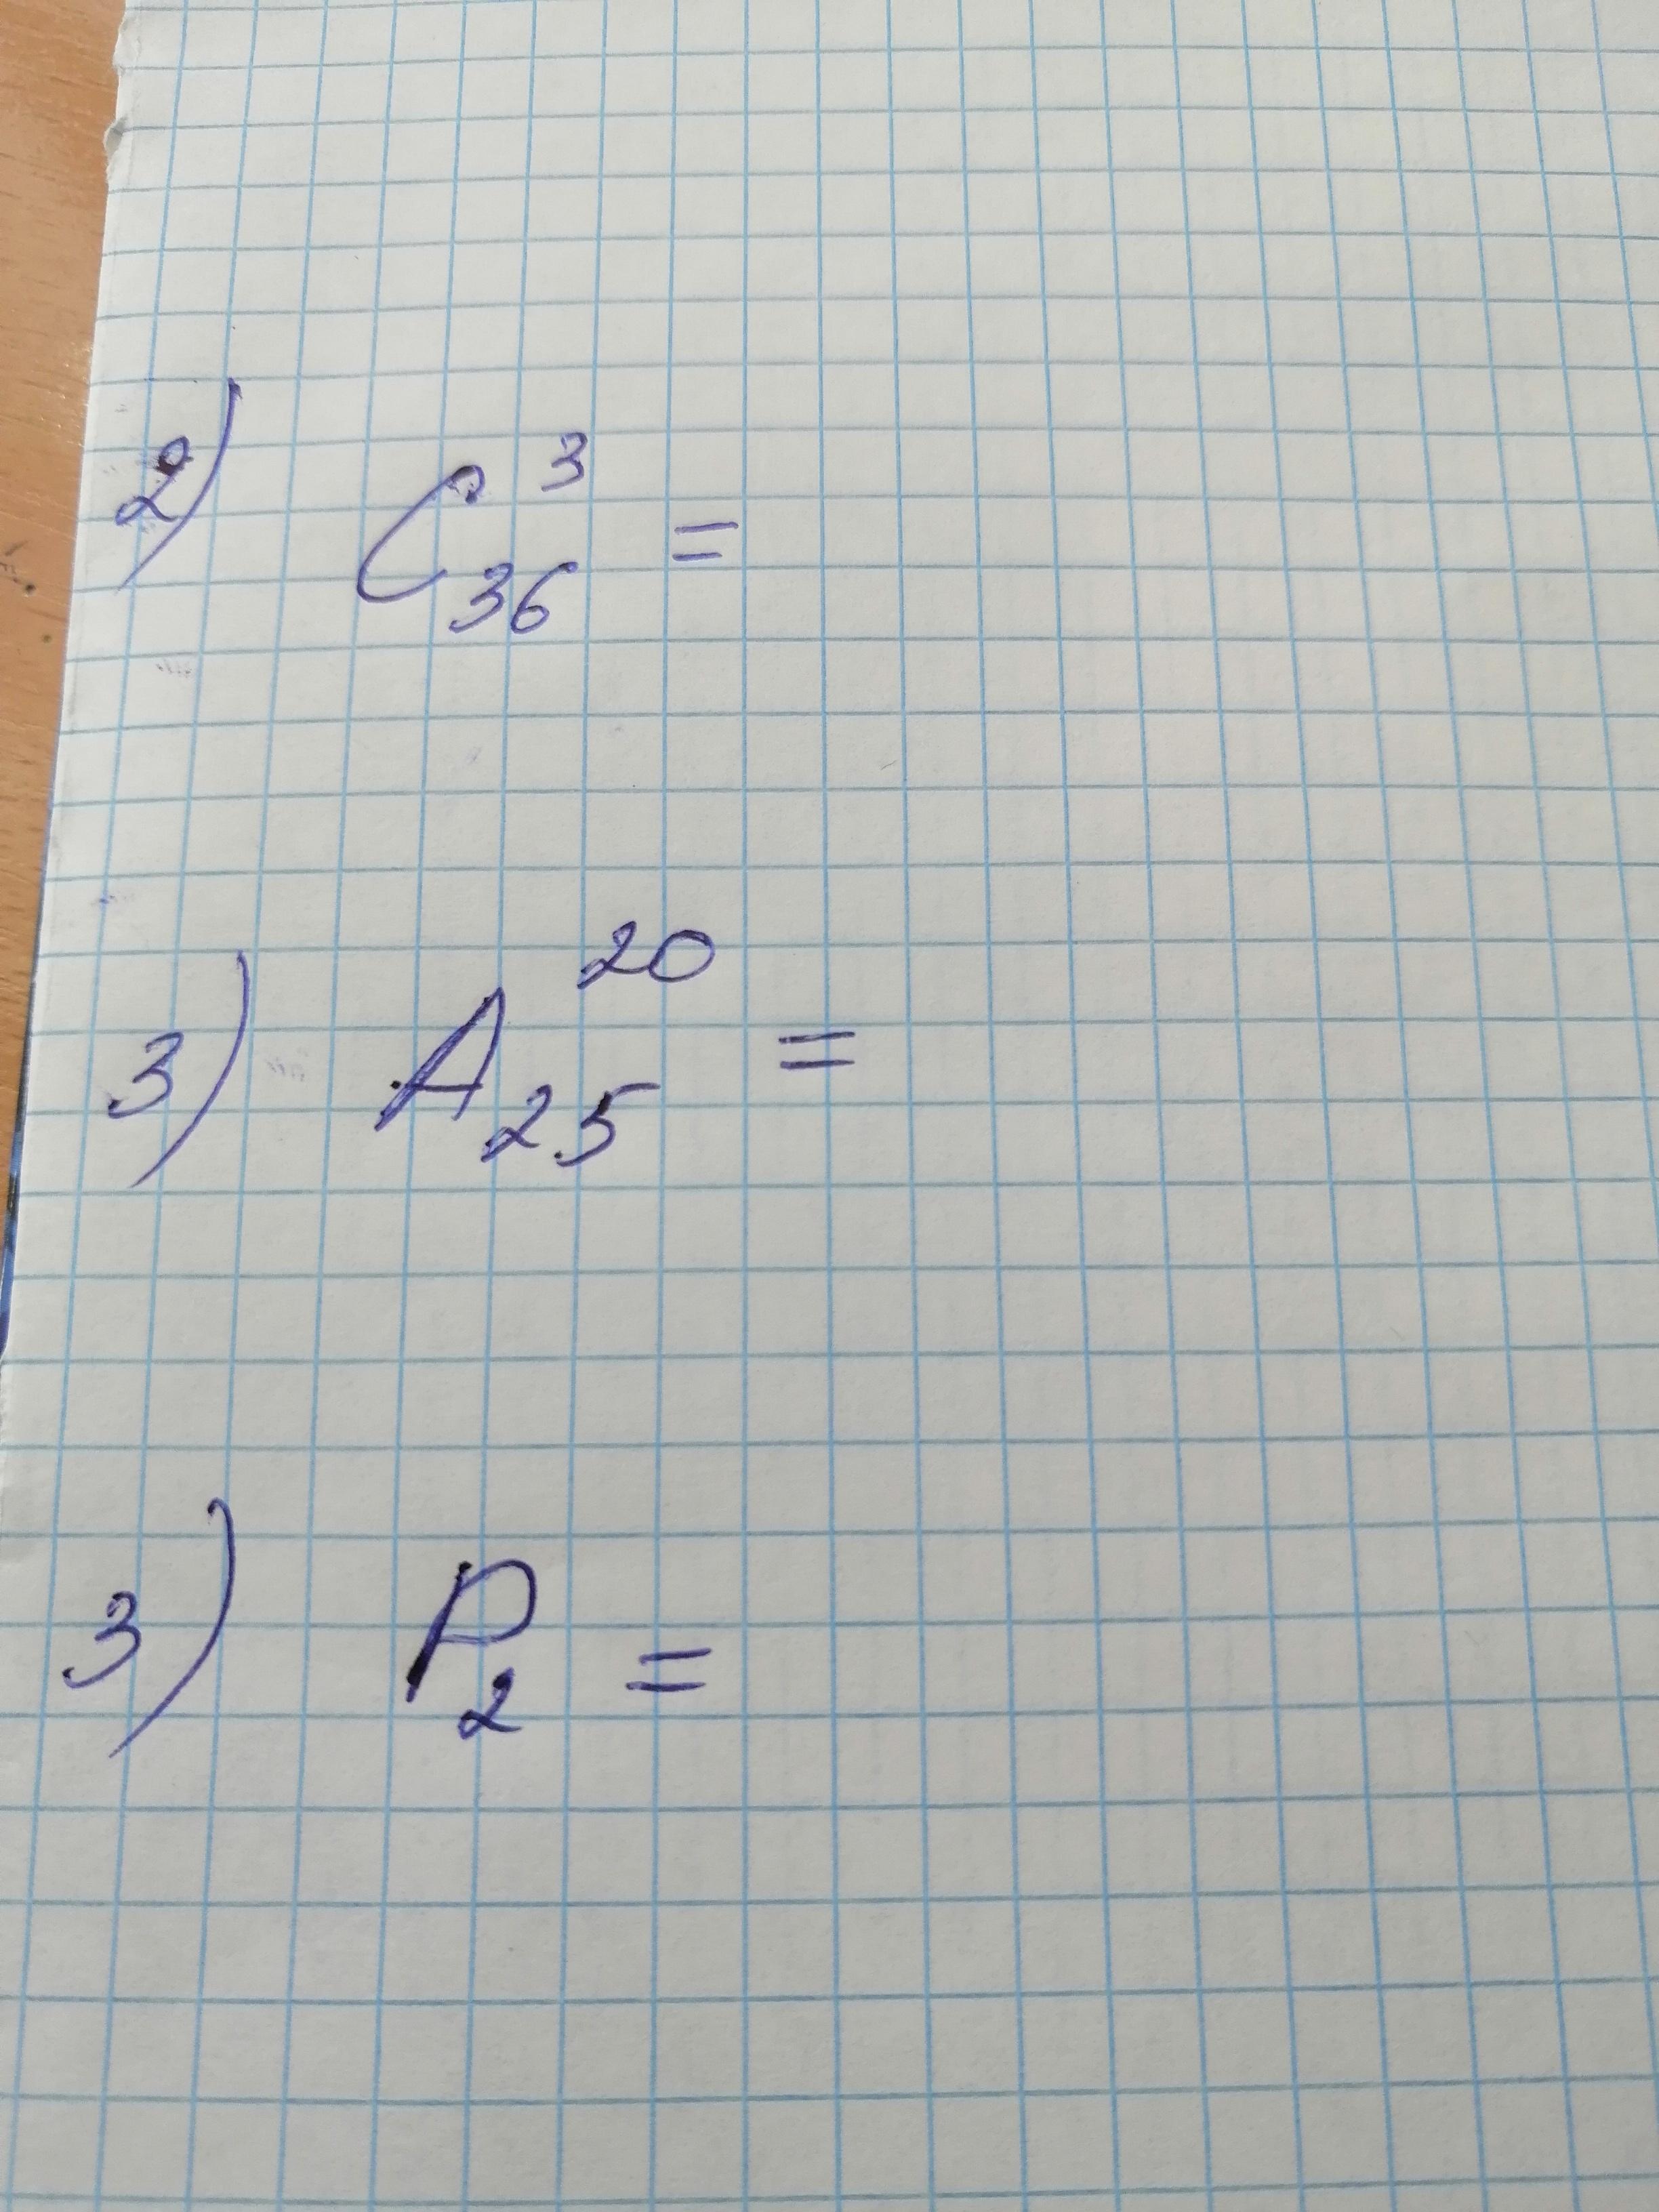 2) C₃₆³ =
3) A₂₅²⁰ =
3) P₂ =